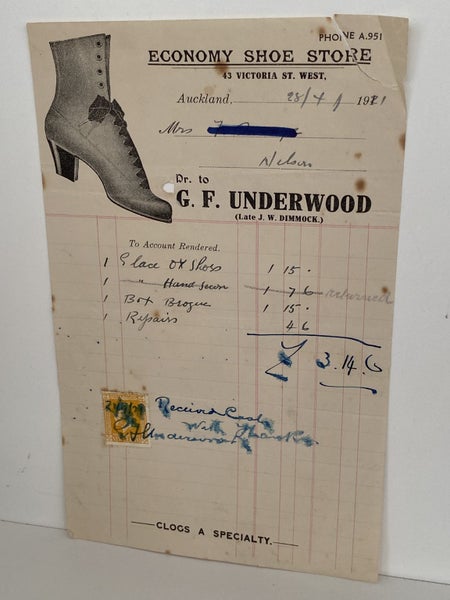 PHONE A.951
ECONOMY SHOE STORE
43 VICTORIA ST. WEST,
Auckland, 28/4/ 1921
Mrs
Nelson
Dr. to
G. F. UNDERWOOD
(Late J. W. DIMMOCK.)
To Account Rendered.
1 Glace Ox Shoes 1 15 .
1 " Hand sewn 1 7 6 returned
1 Box Brogue 1 15 .
1 Repairs 4 6
3.14.6
Received Cash
With Thanks
G F Underwood
CLOGS A SPECIALTY.